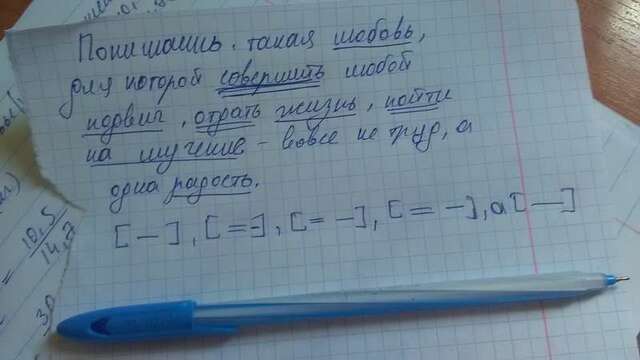 Понимаешь. такая любовь,
для которой совершить любой
подвиг, отдать жизнь, пойти
на мучение - вовсе не труд, а
одна радость.
[—], [==-], [= —], [== —], а [—]
10,5
14,7
30